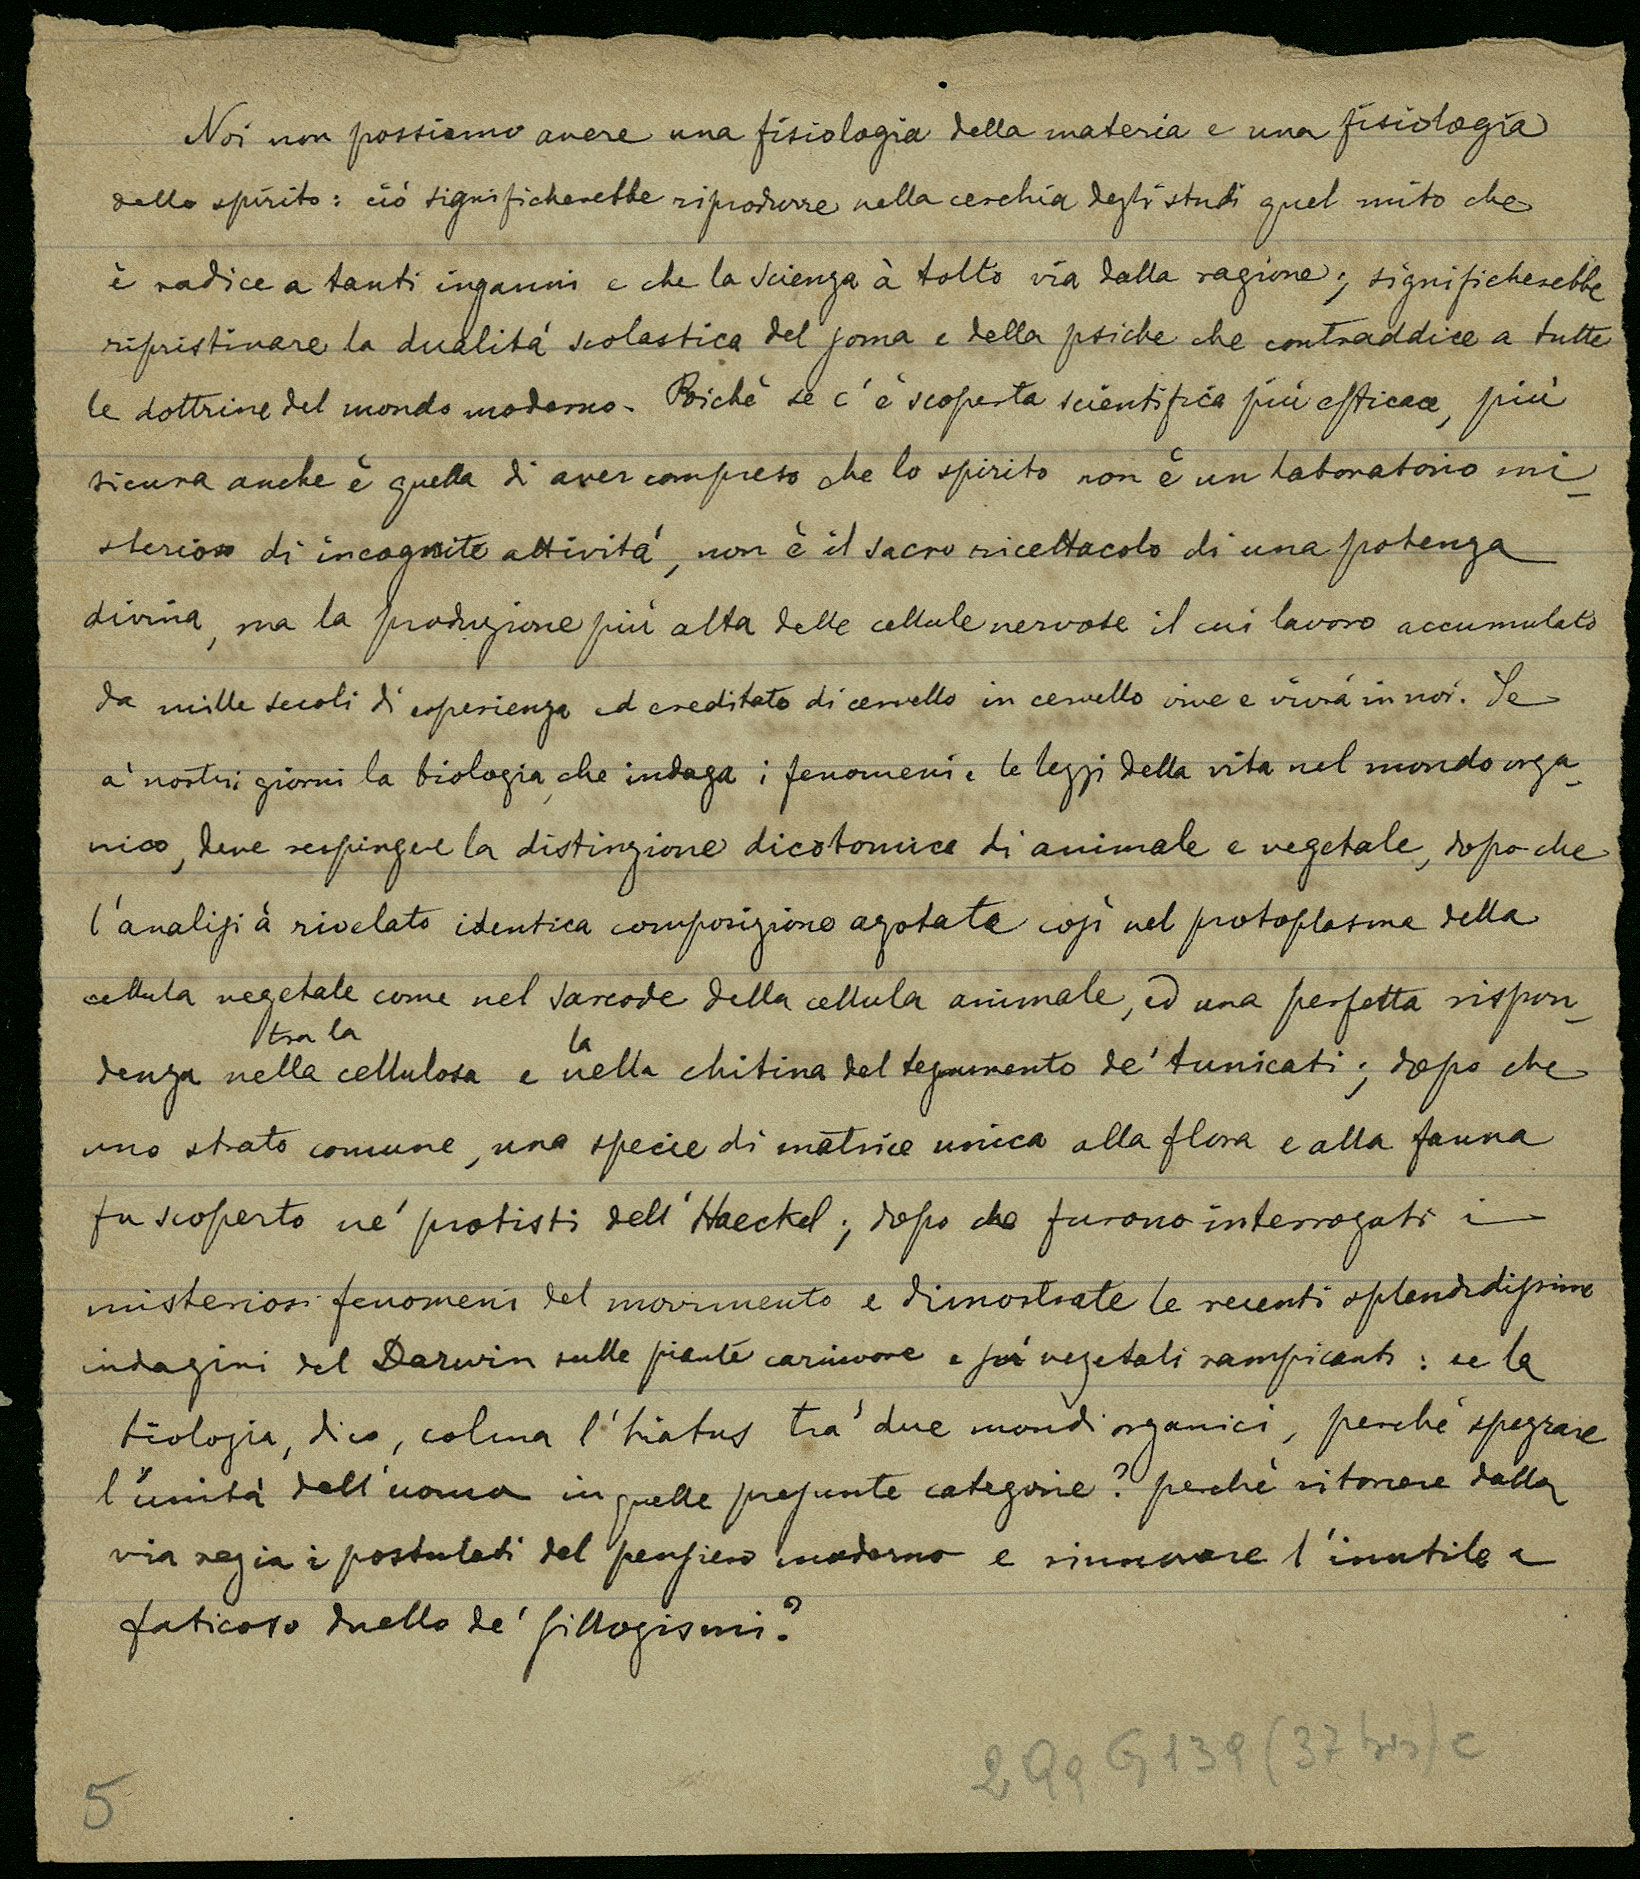 Noi non possiamo avere una fisiologia della materia e una fisiologia
dello spirito: ciò significherebbe riprodurre nella cerchia degli studi quel mito che
è radice a tanti inganni e che la scienza à tolto via dalla ragione; significherebbe
ripristinare la dualità scolastica del soma e della psiche che contraddice a tutte
le dottrine del mondo moderno. Poichè se c'è scoperta scientifica più efficace, più
sicura anche è quella di aver compreso che lo spirito non è un laboratorio mi-
sterioso di incognite attività, non è il sacro ricettacolo di una potenza
divina, ma la produzione più alta delle cellule nervose il cui lavoro accumulato
da mille secoli di esperienza ed ereditato di cervello in cervello vive e vivrà in noi. Se
a' nostri giorni la biologia, che indaga i fenomeni e le leggi della vita nel mondo orga-
nico, deve respingere la distinzione dicotomica di animale e vegetale, dopo che
l'analisi à rivelato identica composizione azotata così nel protoplasma della
cellula vegetale come nel sarcode della cellula animale, ed una perfetta rispon-
tra la la
denza nella cellulosa e nella chitina del tegumento de' tunicati; dopo che
uno strato comune, una specie di matrice unica alla flora e alla fauna
fu scoperto ne' protisti dell'Haeckel; dopo che furono interrogati i
misteriosi fenomeni del movimento e dimostrate le recenti splendidissime
indagini del Darwin sulle piante carnivore e sui vegetali rampicanti: se la
biologia, dico, colma l'hiatus tra' due mondi organici, perchè spezzare
l'unità dell'uomo in quelle presunte categorie? perchè ritorcere dalla
via regia i postulati del pensiero moderno e rinnovare l'inutile e
faticoso duello de' sillogismi?
2 Qq G 139 (37 bis) c
5